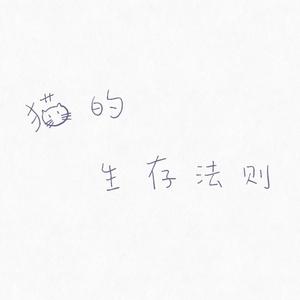 猫的
生存法则